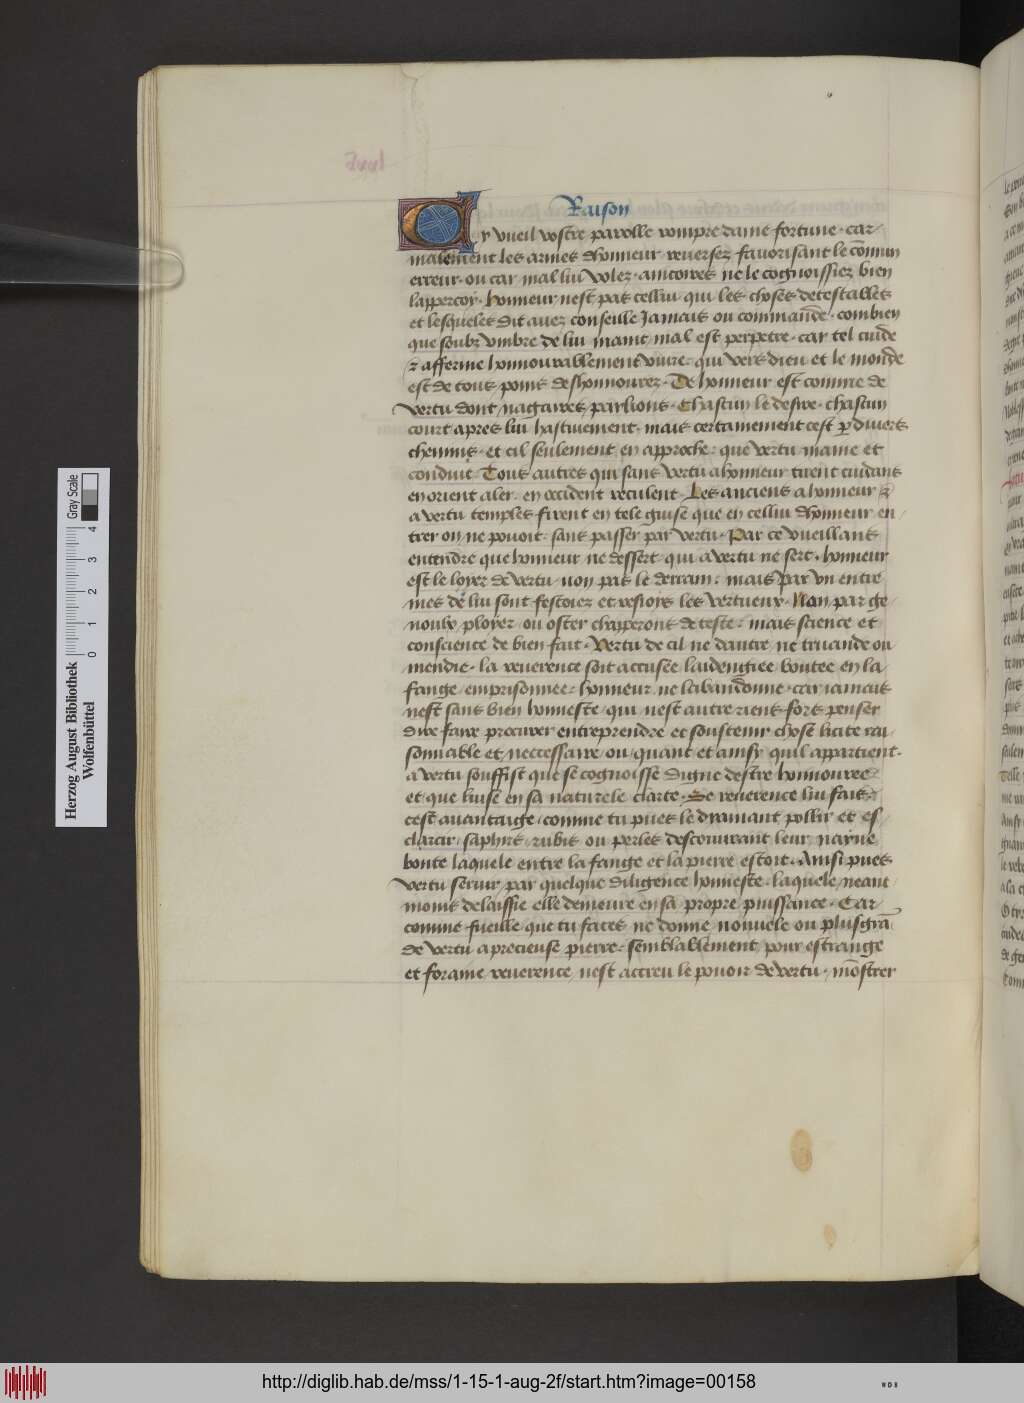 Raison
Cy vueil vostre parolle rompre dame fortune · car
malement les armes dhonneur reversez favorisant le cōmun
erreur · ou car mal lui volez · ancores ne le cognoissiez bien
lappercoy · honneur nest pas cellui qui les choses detestables
et lesqueles dit avez conseille Jamais ou commande · combien
que soubz umbre de lui maint mal est perpetre · car tel cuide
⁊ afferme honnourablement vivre · qui vers dieu et le monde
est de tous poins deshonnourez · De honneur est comme de
vertu dont nagaires parlions · Chascun le desire · chascun
court apres lui hastivement · mais certainement cest ꝑ divers
chemins · et cil seulement en approche · que vertu maine et
conduit · Tous autres qui sans vertu a honneur tirent cuidans
en orient aler · en occident reculent · Les anciens a honneur ⁊
a vertu temples firent en tele guise que en cellui dhonneur en
trer on ne povoit · sans passer par vertu · Par ce vueillans
entendre que honneur ne dessert · qui a vertu ne sert · honneur
est le loyer de vertu · non pas le derrain · mais par un entre
mes de lui sont festoiez et resioys les vertueux · Non par ge
noulx ployer · ou oster chapperons de teste · mais science et
conscience de bien fait · Vertu de cil ne dautre ne truande ou
mendie · la reverence soit accusee laidengiee boutee en la
fange emprisonnee · honneur ne labandonne · car iamais
nest sans bien honneste · qui nest autre riens fors penser
dire faire procurer entreprendre et soustenir chose licite rai
sonnable et neccessaire ou quant et ainsy quil appartient ·
a vertu souffist que se cognoisse digne destre honnouree
et que luise en sa naturele clarte · Se reverence lui fais
cest avantaige · comme tu pues le dyamant pollir et es
clarcir · saphirs · rubis ou perles descouvrant leur nayve
bonte laquele entre la fange et la pierre estoit · Ainsi pues
vertu servir par quelque diligence honneste · laquele neant
moins delaissie elle demeure en sa propre puissance · Car
comme fueille que tu faces ne donne nouvele ou plus grā
de vertu a precieuse pierre · semblablement pour estrange
et foraine reverence nest accreu le povoir de vertu · mōstrer
Herzog August Bibliothek
Wolfenbüttel
0 1 2 3 4
Gray Scale
http://diglib.hab.de/mss/1-15-1-aug-2f/start.htm?image=00158